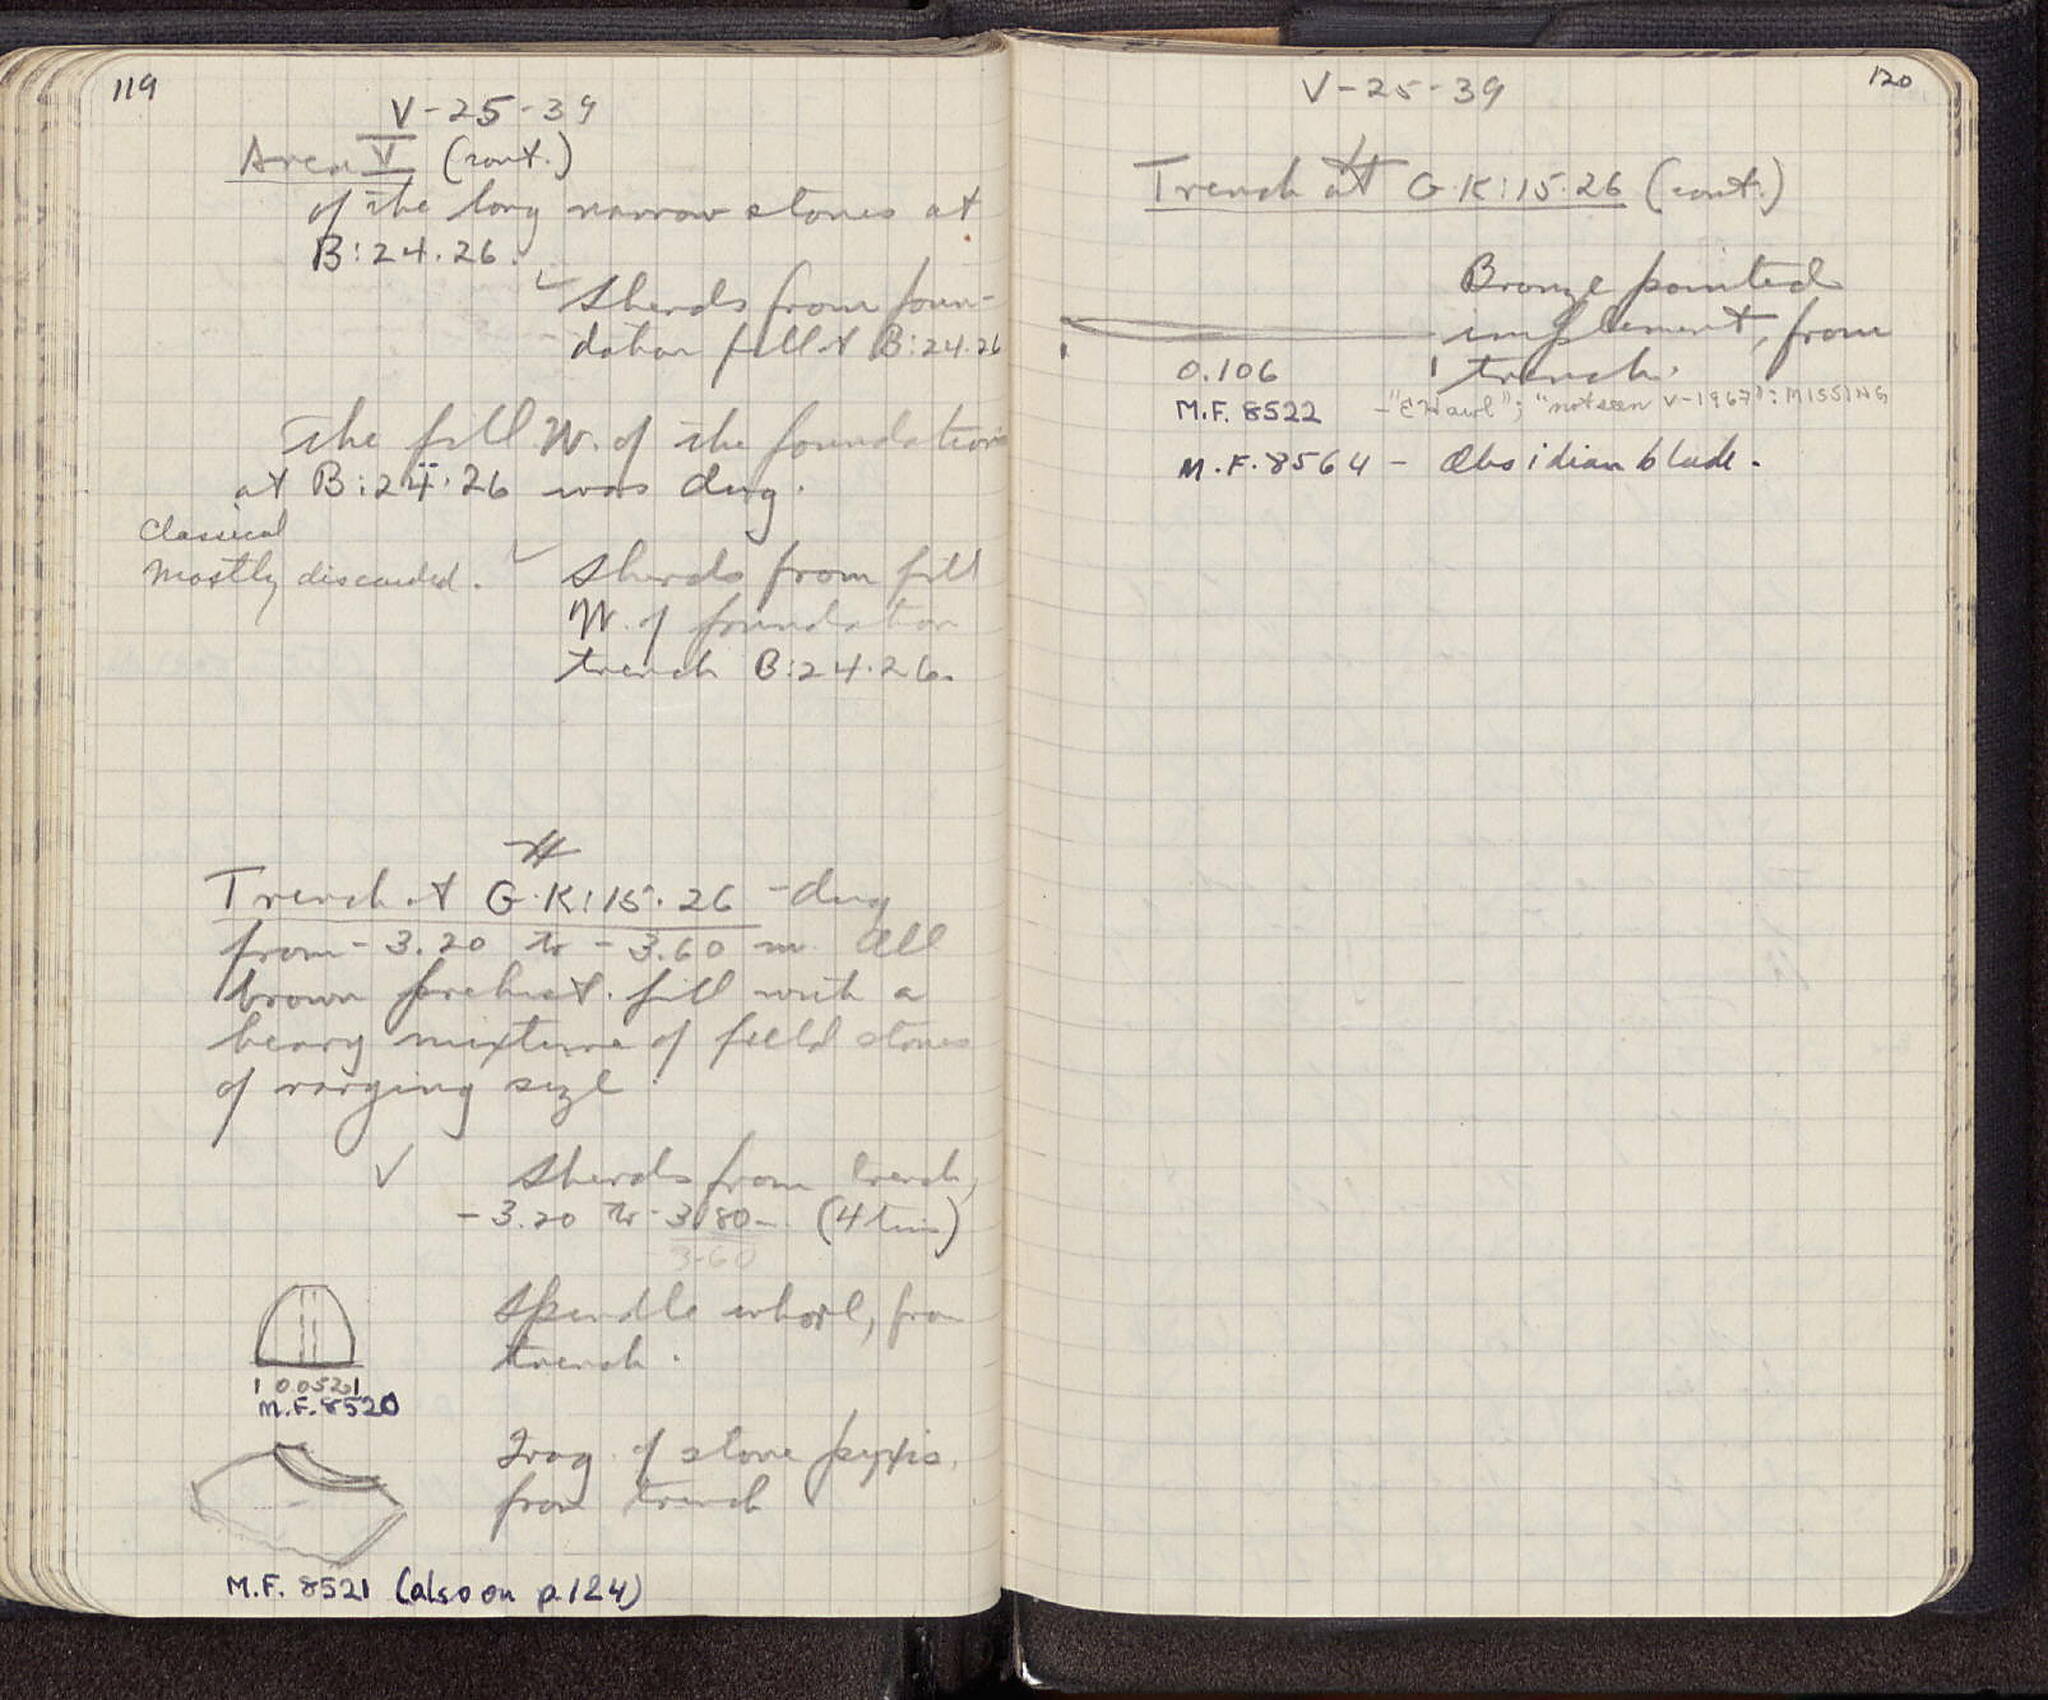 119
V-25-39
Area V (cont.)
of the long narrow stones at
B:24.26.
✓ Sherds from foun-
dation fill at B:24.26
The fill W. of the foundation
at B:24.26 was dug.
Classical
Mostly discarded.
✓ Sherds from fill
W. of foundation
trench B:24.26.
Trench at G-K:15.26 - dug
from -3.20 to -3.60 m. All
brown prehist. fill with a
heavy mixture of field stones
of varying size.
✓ Sherds from trench,
-3.20 to -3.80 m. (4 tins)
3.60
Spindle whorl, from
trench.
0.052
M.F. 8520
Frag. of stone pyxis,
from trench
M.F. 8521 (also on p. 124)
120
V-25-39
Trench at G-K:15.26 (cont.)
Bronze pointed
implement, from
trench.
0.106
M.F. 8522 - "awl"; "not seen V-1967": MISSING
M.F. 8564 - Obsidian blade.